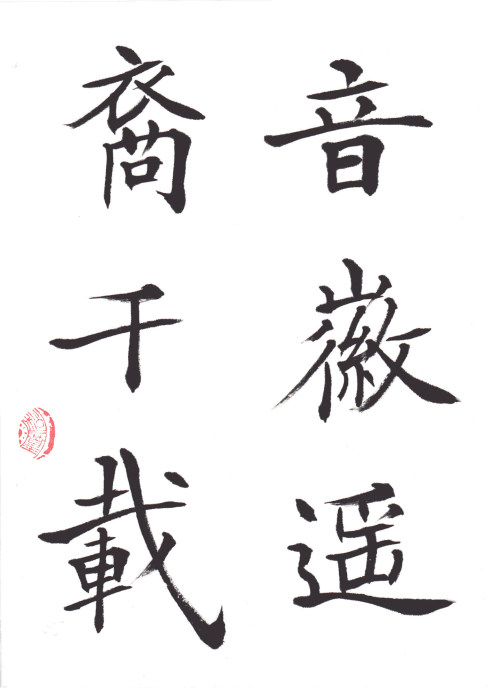 音徽遥
裔千載